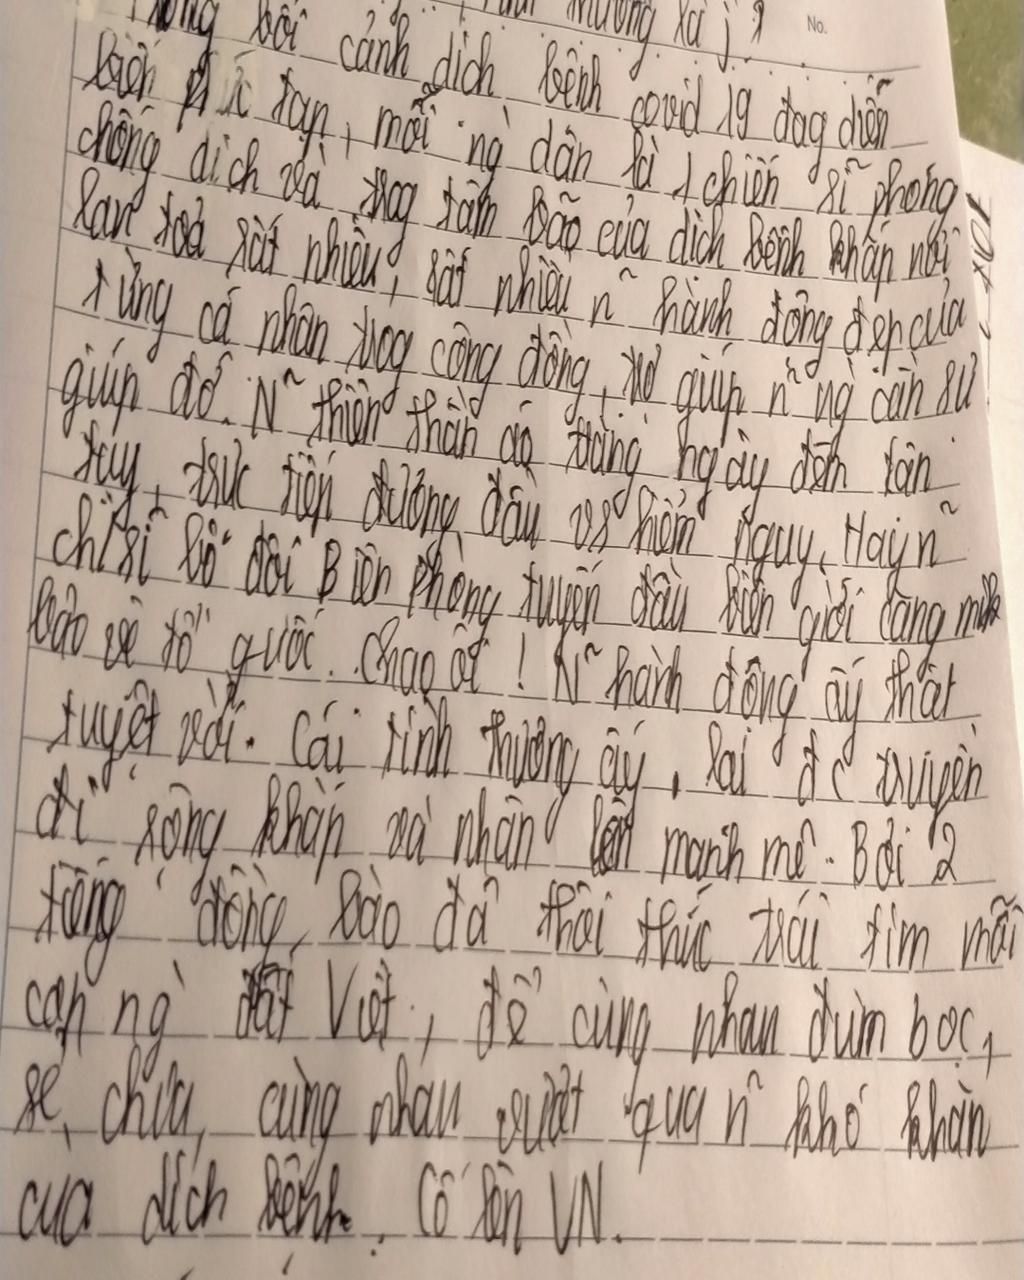 No.
Trong bối cảnh dịch bệnh covid 19 đag diễn
biến phức tạp, mỗi ng` dân là 1 chiến sĩ phòng
chống dịch và trog tâm bão của dịch bệnh khắp nơi
lan toả rất nhiều, rất nhiều n~ hành động đẹp của
từng cá nhân trog cộng đồng, trợ giúp n~ ng` cần sự
giúp đỡ. N~ thiên thần áo trắng ngày đêm tận
tụy, trực tiếp đương đầu vs hiểm nguy. Hay n~
ch/sĩ bộ đội Biên phòng tuyến đầu biên giới căng mình
bảo vệ tổ quốc. Chao ôi! N~ hành động ấy thật
tuyệt vời. Cái tình thương ấy, lại đc truyền
đi rộng khắp và nhân lên mạnh mẽ. Bởi 2
tiếng đồng bào đã thôi thúc trái tim mỗi
con ng` đất Việt, để cùng nhau đùm bọc,
sẻ chia, cùng nhau vượt qua n~ khó khăn
của dịch bệnh. Cố lên VN.